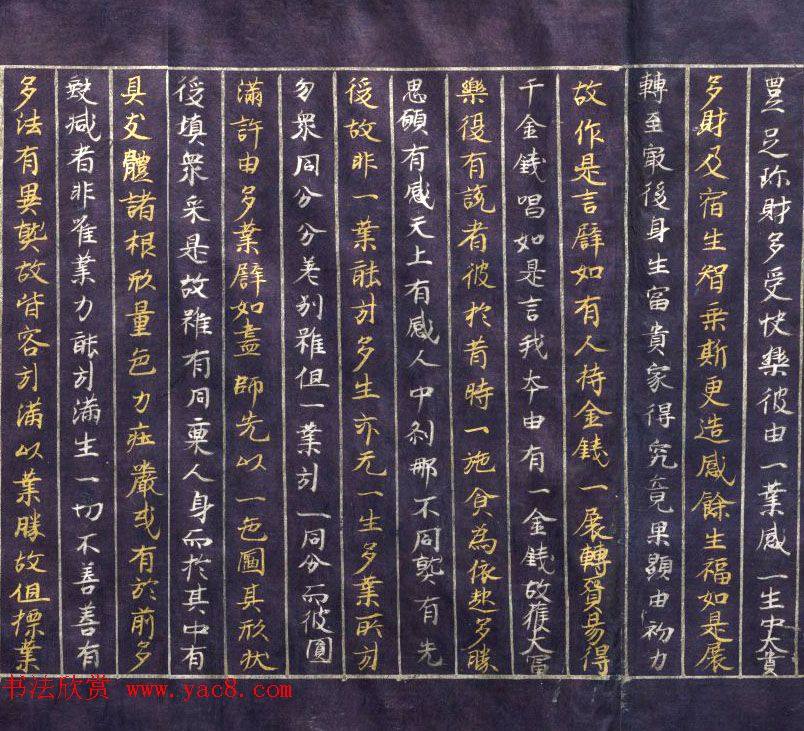 豐足珎財多受快樂彼由一業感一生中大貴
多財及宿生智乗斯更造感餘生福如是展
轉至㝡後身生富貴家得究竟果顯由初力
故作是言譬如有人持金錢一展轉貿易得
千金錢唱如是言我本由有一金錢故獲大富
樂復有說者彼於昔時一施食為依起多勝
思願有感天上有感人中刹那不同熟有先
後故非一業能引多生亦无一生多業所引
勿眾同分分差別雖但一業引一同分而彼圓
滿許由多業譬如畫師先以一色圖其形狀
後填眾采是故雖有同稟人身而於其中有
具支體諸根形量色力莊嚴或有於前多
缺减者非唯業力能引滿生一切不善善有
多法有異熟故皆容引滿以業勝故但摽業
书法欣赏 www.yac8.com